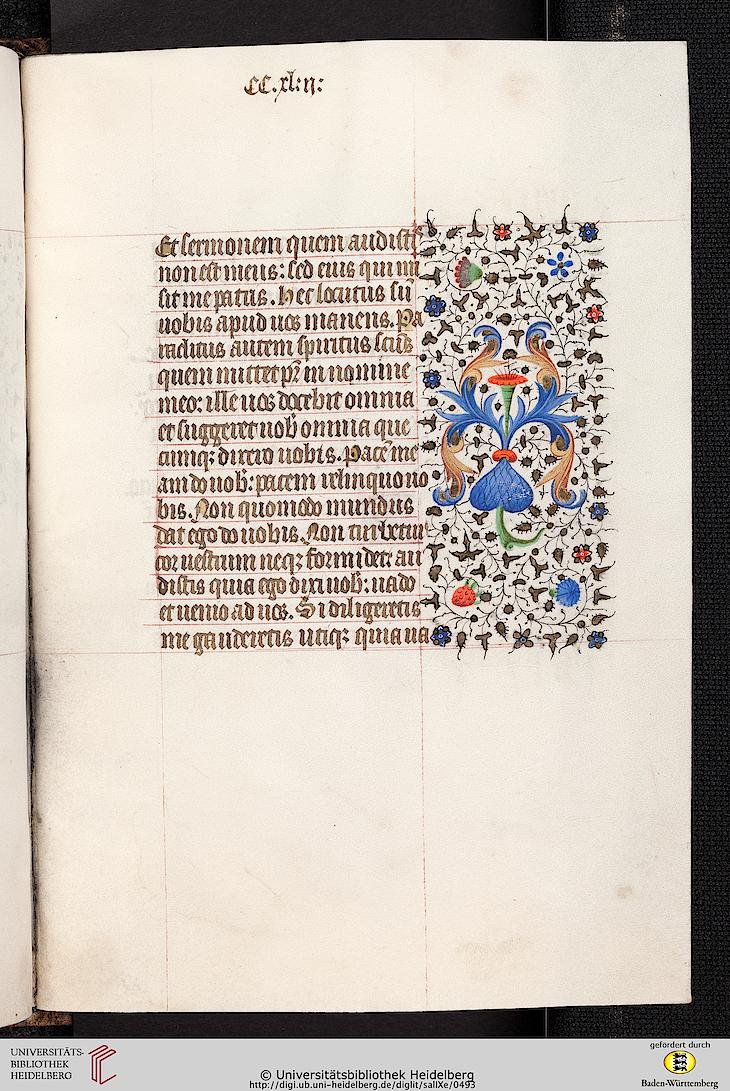 CC.xl:ij:
Et sermonem quem audistis
non est meus: sed eius qui mi
sit me patris. Hec locutus su
uobis apud uos manens. Pa
raclitus autem spiritus scūs
quem mittet pr̄ in nomine
meo: ille uos docebit omnia
et suggeret uob̄ omnia que
cumqꝫ dixero uobis. Pacē me
am do uob̄: pacem relinquo uo
bis. Non quomodo mundus
dat ego do uobis. Non turbetur
cor uestrum neqꝫ formidet: au
distis quia ego dixi uob̄: uado
et uenio ad uos. Si diligeretis
me gauderetis utiqꝫ quia ua
UNIVERSITÄTS-
BIBLIOTHEK
HEIDELBERG
© Universitätsbibliothek Heidelberg
http://digi.ub.uni-heidelberg.de/diglit/salIXe/0493
gefördert durch
Baden-Württemberg